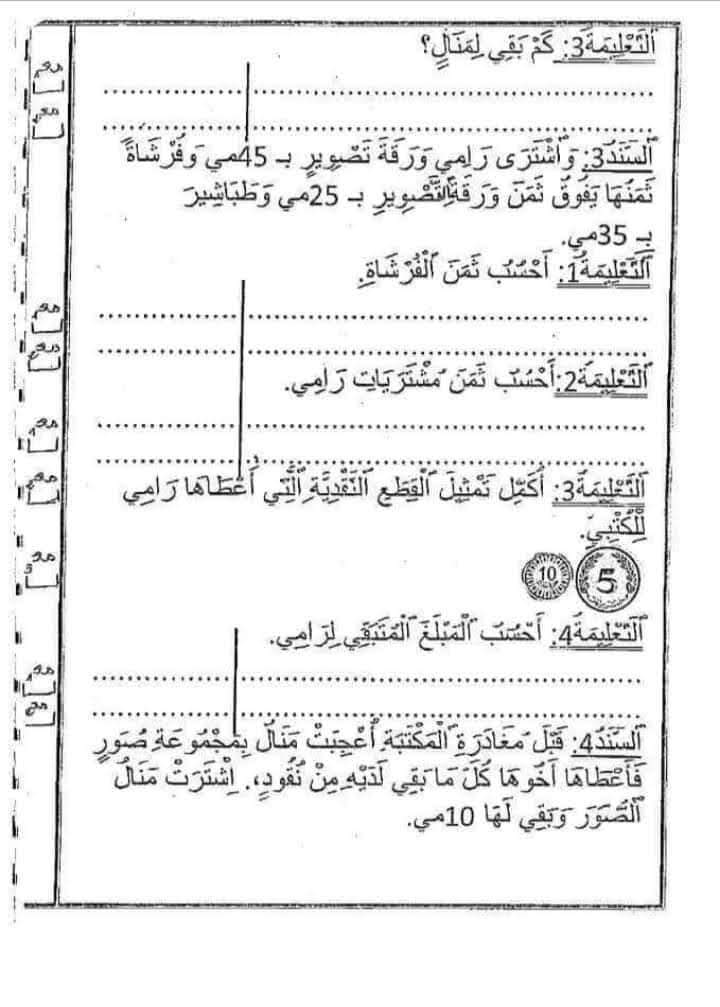 اَلتَّعْلِيمَةُ3: كَمْ بَقِي لِمَنَالٍ؟
اَلسَّنَدُ3: وَاشْتَرَى رَامِي وَرَقَةَ تَصْوِيرٍ بـ 45مي وَفُرْشَاةً
ثَمَنُهَا يَفُوقُ ثَمَنَ وَرَقَةِ التَّصْوِيرِ بـ 25مي وَطَبَاشِيرَ
بـ 35مي.
اَلتَّعْلِيمَةُ1: أَحْسُبُ ثَمَنَ الْفُرْشَاةِ.
اَلتَّعْلِيمَةُ2: أَحْسُبُ ثَمَنَ مُشْتَرَيَاتِ رَامِي.
اَلتَّعْلِيمَةُ3: أُكَمِّلُ تَمْثِيلَ الْقِطَعِ النَّقْدِيَّةِ الَّتِي أَعْطَاهَا رَامِي
لِلْكُتْبِيِّ.
5 10
اَلتَّعْلِيمَةُ4: أَحْسُبُ الْمَبْلَغَ الْمُتَبَقِّي لِرَامِي.
اَلسَّنَدُ4: قَبْلَ مُغَادَرَةِ الْمَكْتَبَةِ أُعْجِبَتْ مَنَالُ بِمَجْمُوعَةِ صُوَرٍ
فَأَعْطَاهَا أَخُوهَا كُلَّ مَا بَقِي لَدَيْهِ مِنْ نُقُودٍ، اِشْتَرَتْ مَنَالُ
الصُّوَرَ وَبَقِي لَهَا 10مي.